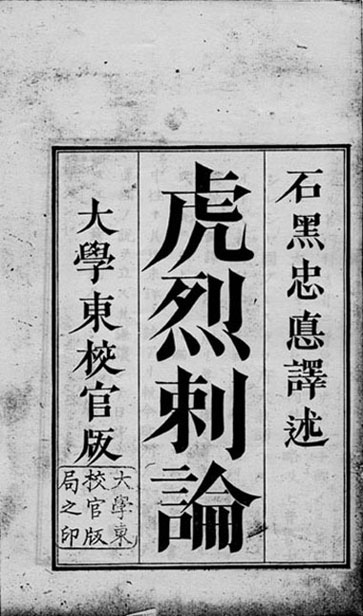 石黑忠悳譯述
虎烈剌論
大學東校官版
大學東
校官版
局之印